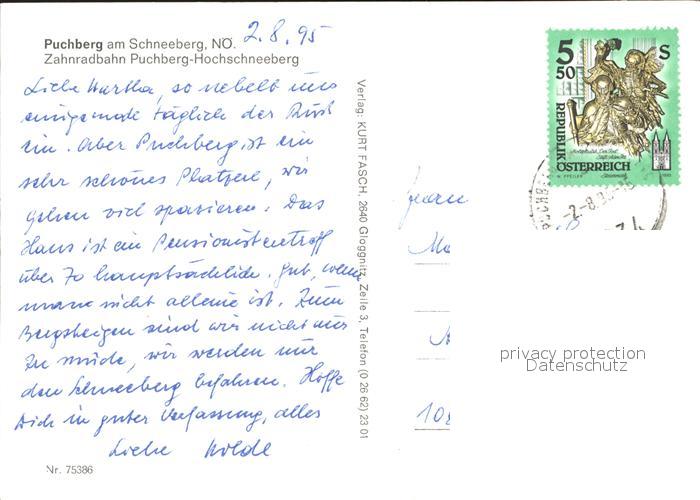 Puchberg am Schneeberg, NÖ. 2.8.95
Zahnradbahn Puchberg-Hochschneeberg
Liebe Hertha, so nebelt uns
einigemale täglich der Ruß
ein. Aber Puchberg ist ein
sehr schönes Platzerl, wir
gehen viel spazieren. Das
Haus ist ein Pensionistentreff
über 70 hauptsächlich. Gut, wenn
man nicht alleine ist. Zum
Bergsteigen sind wir nicht nur
zu müde, wir werden nur
den Schneeberg befahren. Hoffe
Dich in guter Verfassung, alles
Liebe
Nr. 75386
Verlag: KURT FASCH, 2640 Gloggnitz, Zeile 3, Telefon (0 26 62) 23 01
5 50 S
REPUBLIK
ÖSTERREICH
-2-8.95
Frau
privacy protection
Datenschutz